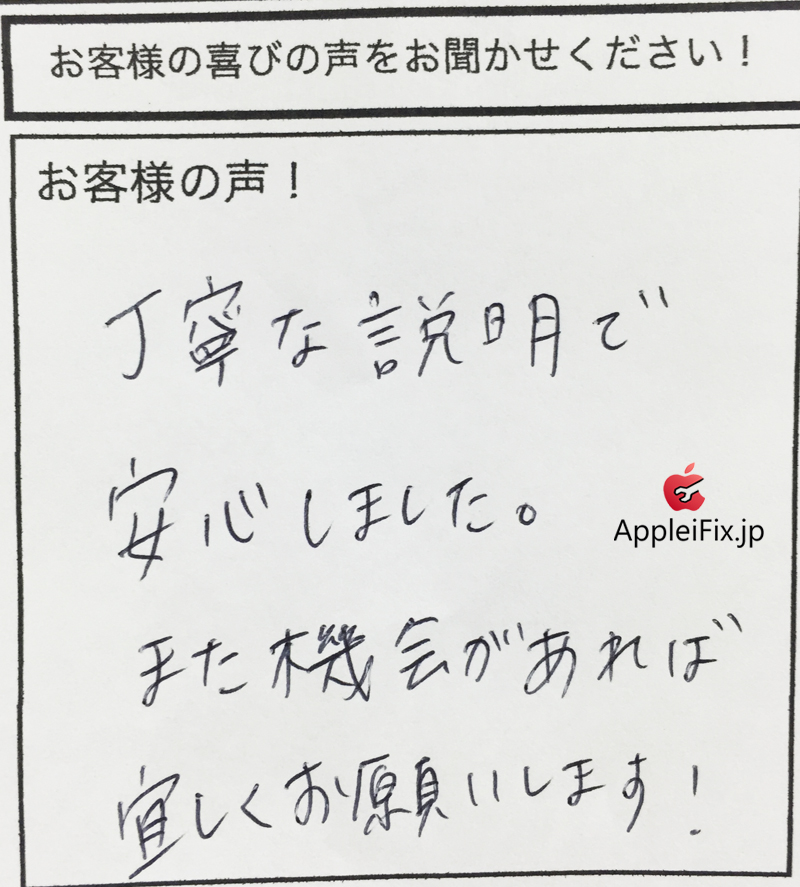 お客様の喜びの声をお聞かせください！
お客様の声！
丁寧な説明で
安心しました。
AppleiFix.jp
また機会があれば
宜しくお願いします！